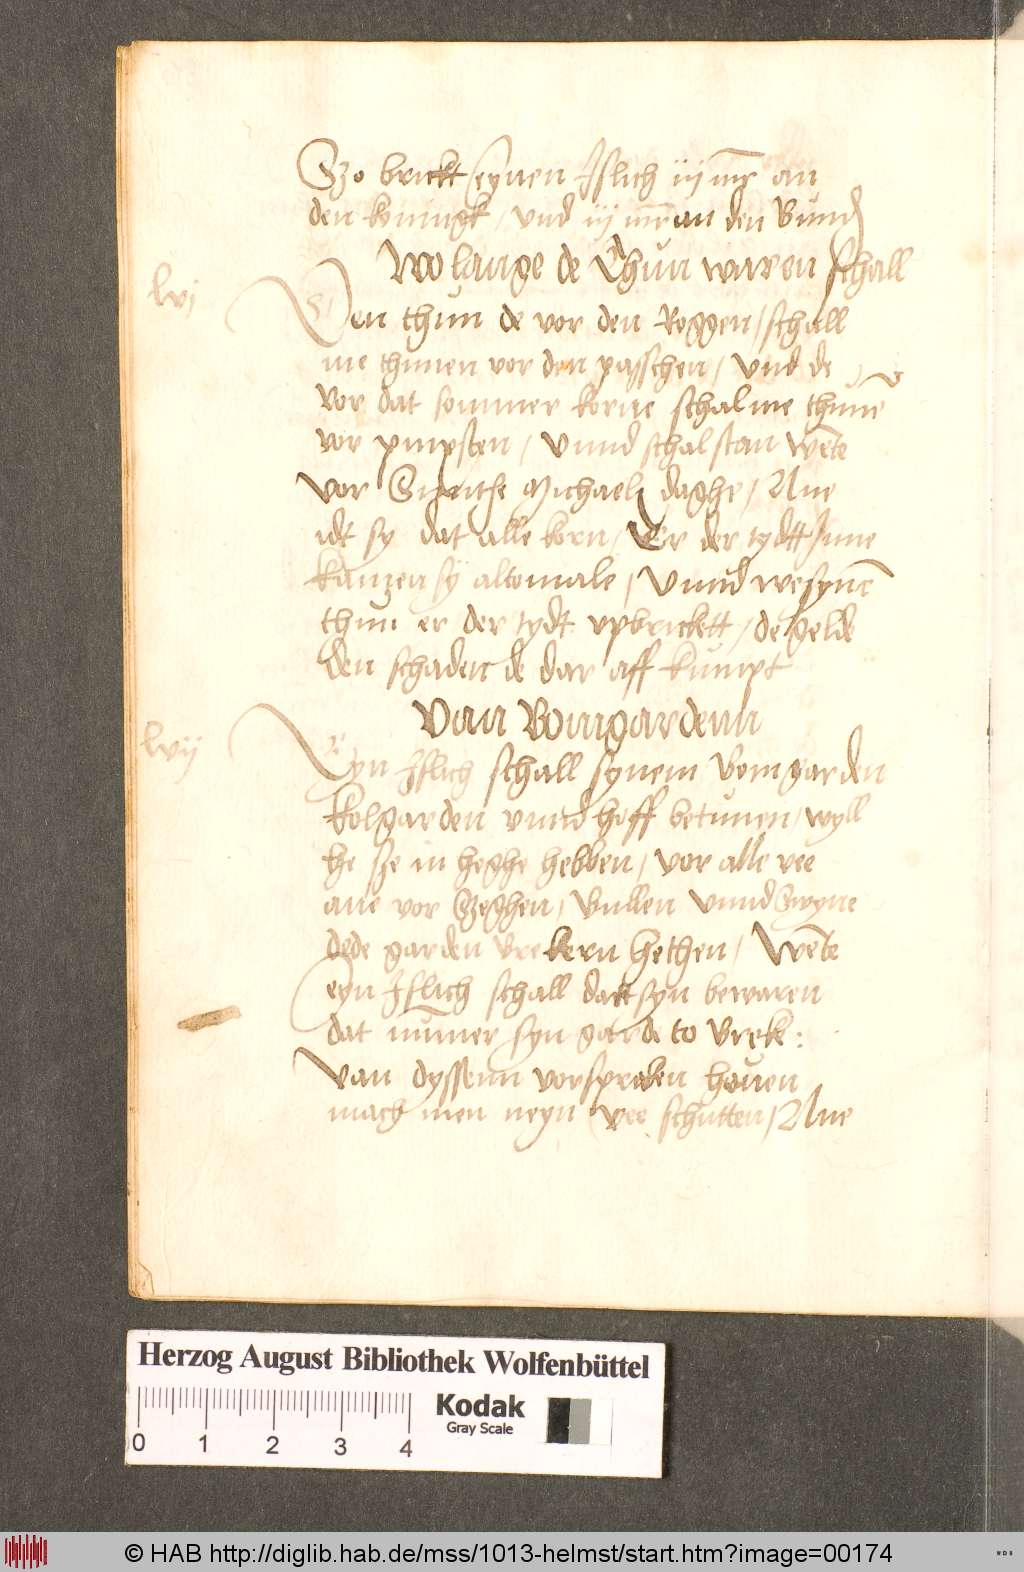 Szo brickt eynen Islich iij mr an
den koningk, und iij mr an den Bund
Wo lange de Thun waren schall
lvj
Den thun de vor den Roggen, schall
me thunen vor den passchen, vnd de
vor dat sommer korne schalme thunē
vor pinxsten, Vnnd schal stan wēte
vor Sunthe Michaels daghe, Ane
idt sy dat alle korn, Er der tydtt Inne
kamen sy altomale, Vnnd we synē
thun er der tydt vpbrickett, de gelde
den schaden de dar aff kumpt
Van Bomgardenn
lvij
Eyn Islich schall synem Bomgarden
kolgarden vnnd hoff betunen, wyll
he sze in heghe hebben, vor alle vee
ane vor Szeghen, Bullen Vnnd Swyne
dede garden brekern hethen, Wēte
eyn Islich schall dat syn bewaren
dat nūmer syn garde to breke:
Van dyssenn vorspraken hauen
mach men neyn vee schutten, Ane
Herzog August Bibliothek Wolfenbüttel
Kodak
Gray Scale
0 1 2 3 4
© HAB http://diglib.hab.de/mss/1013-helmst/start.htm?image=00174